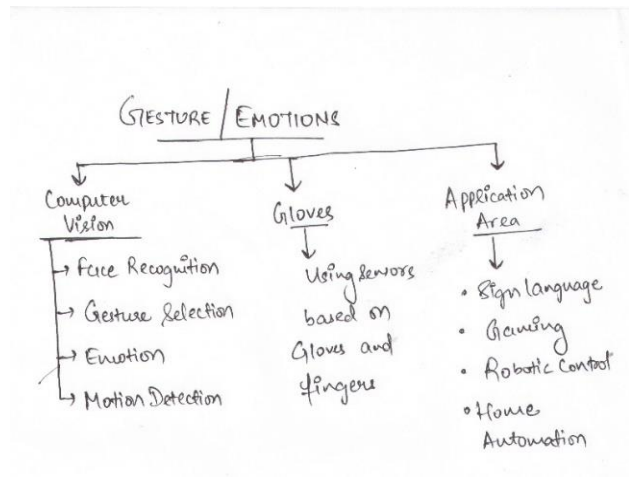 GESTURE / EMOTIONS
Computer
Vision
Face Recognition
Gesture Selection
Emotion
Motion Detection
Gloves
Using sensors
based on
Gloves and
fingers
Application
Area
• Sign language
• Gaming
• Robotic Control
• Home
Automation